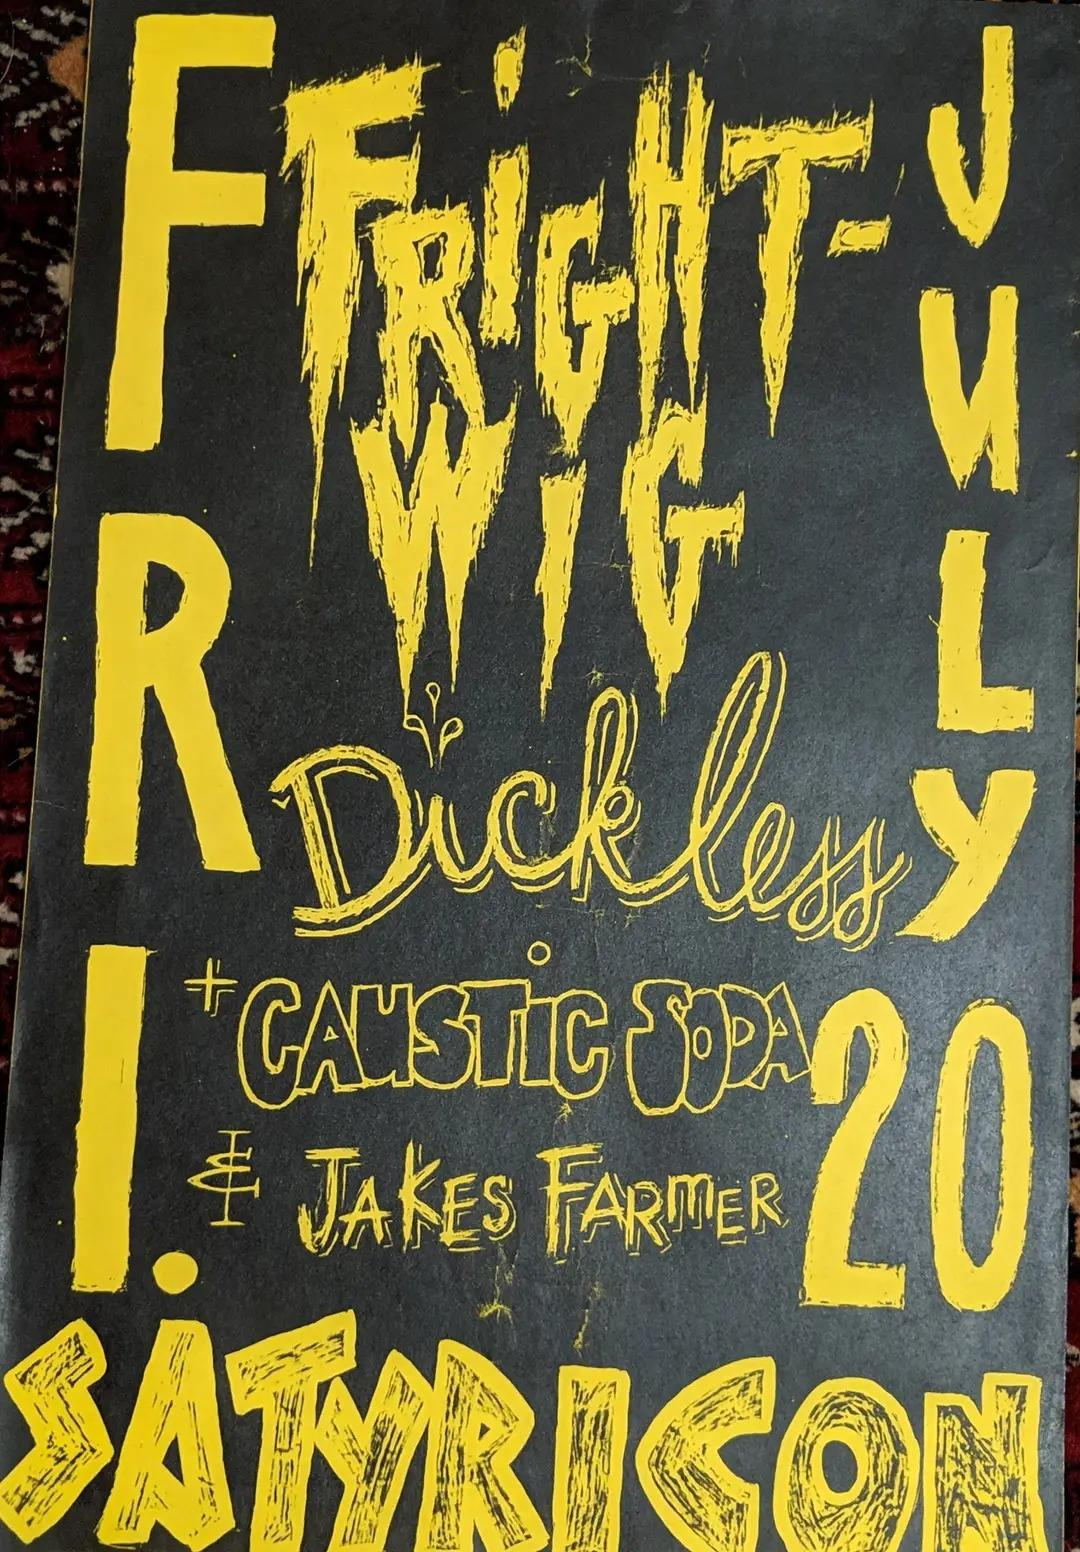 FRI.
FRiGHT-
WiG
JULY 20
Dickless
+ CAUSTiC SODA
& JAKES FARMER
SATYRICON